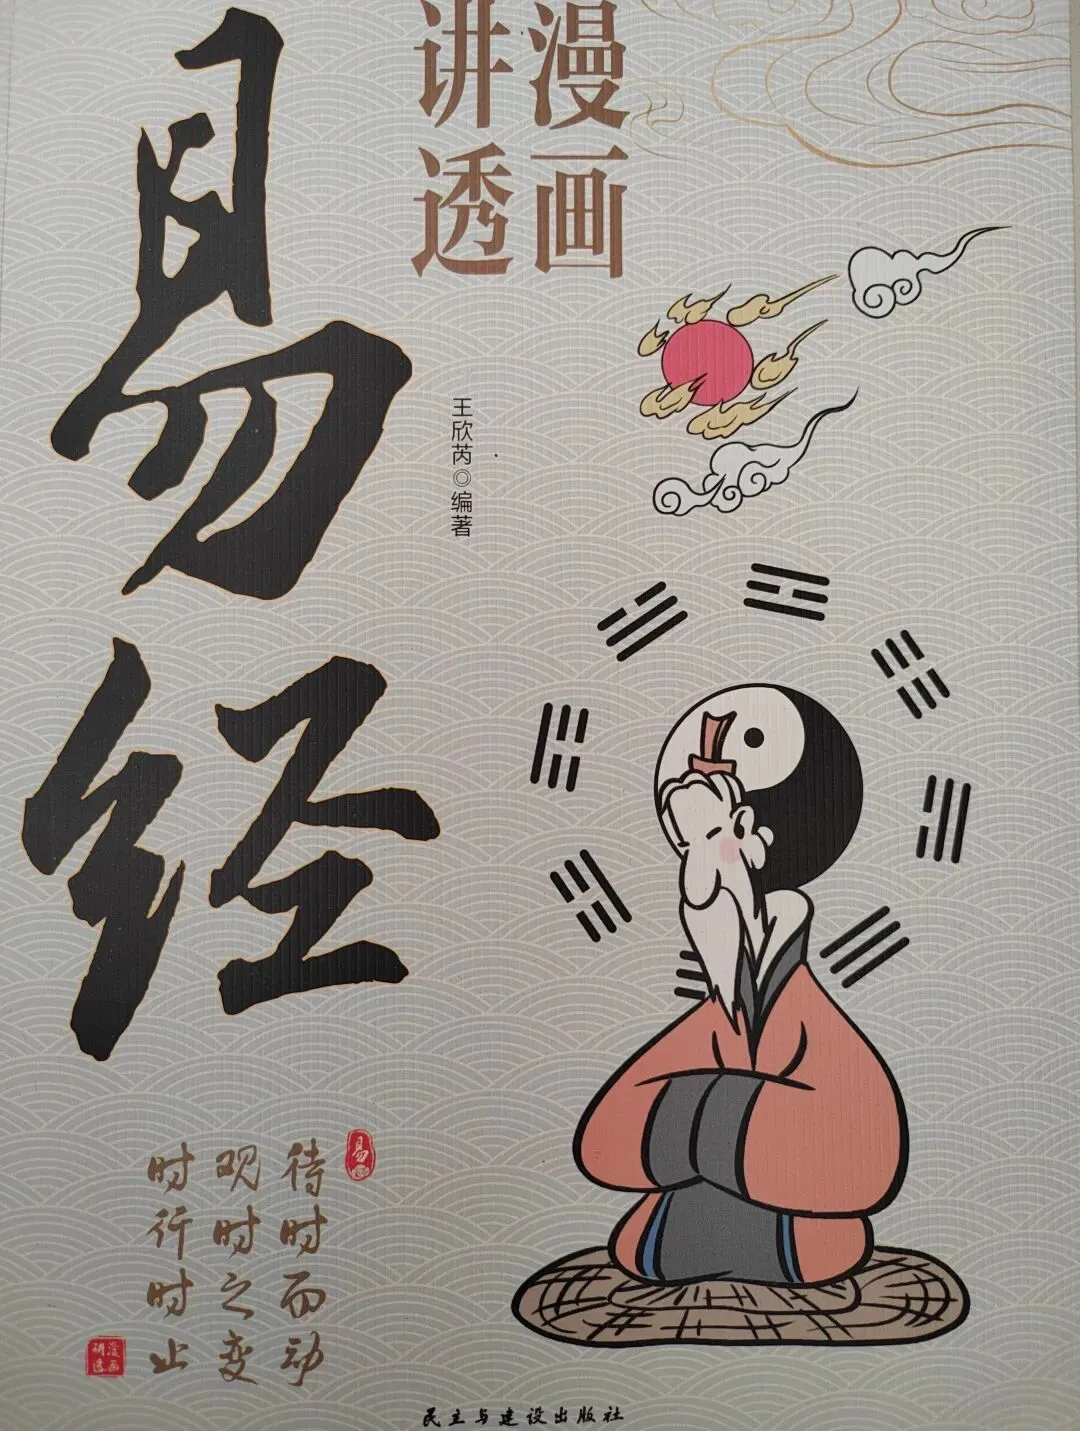 漫画
讲透
易经
王欣芮◎编著
易
待时而动
观时之变
时行时止
漫画
讲透
民主与建设出版社